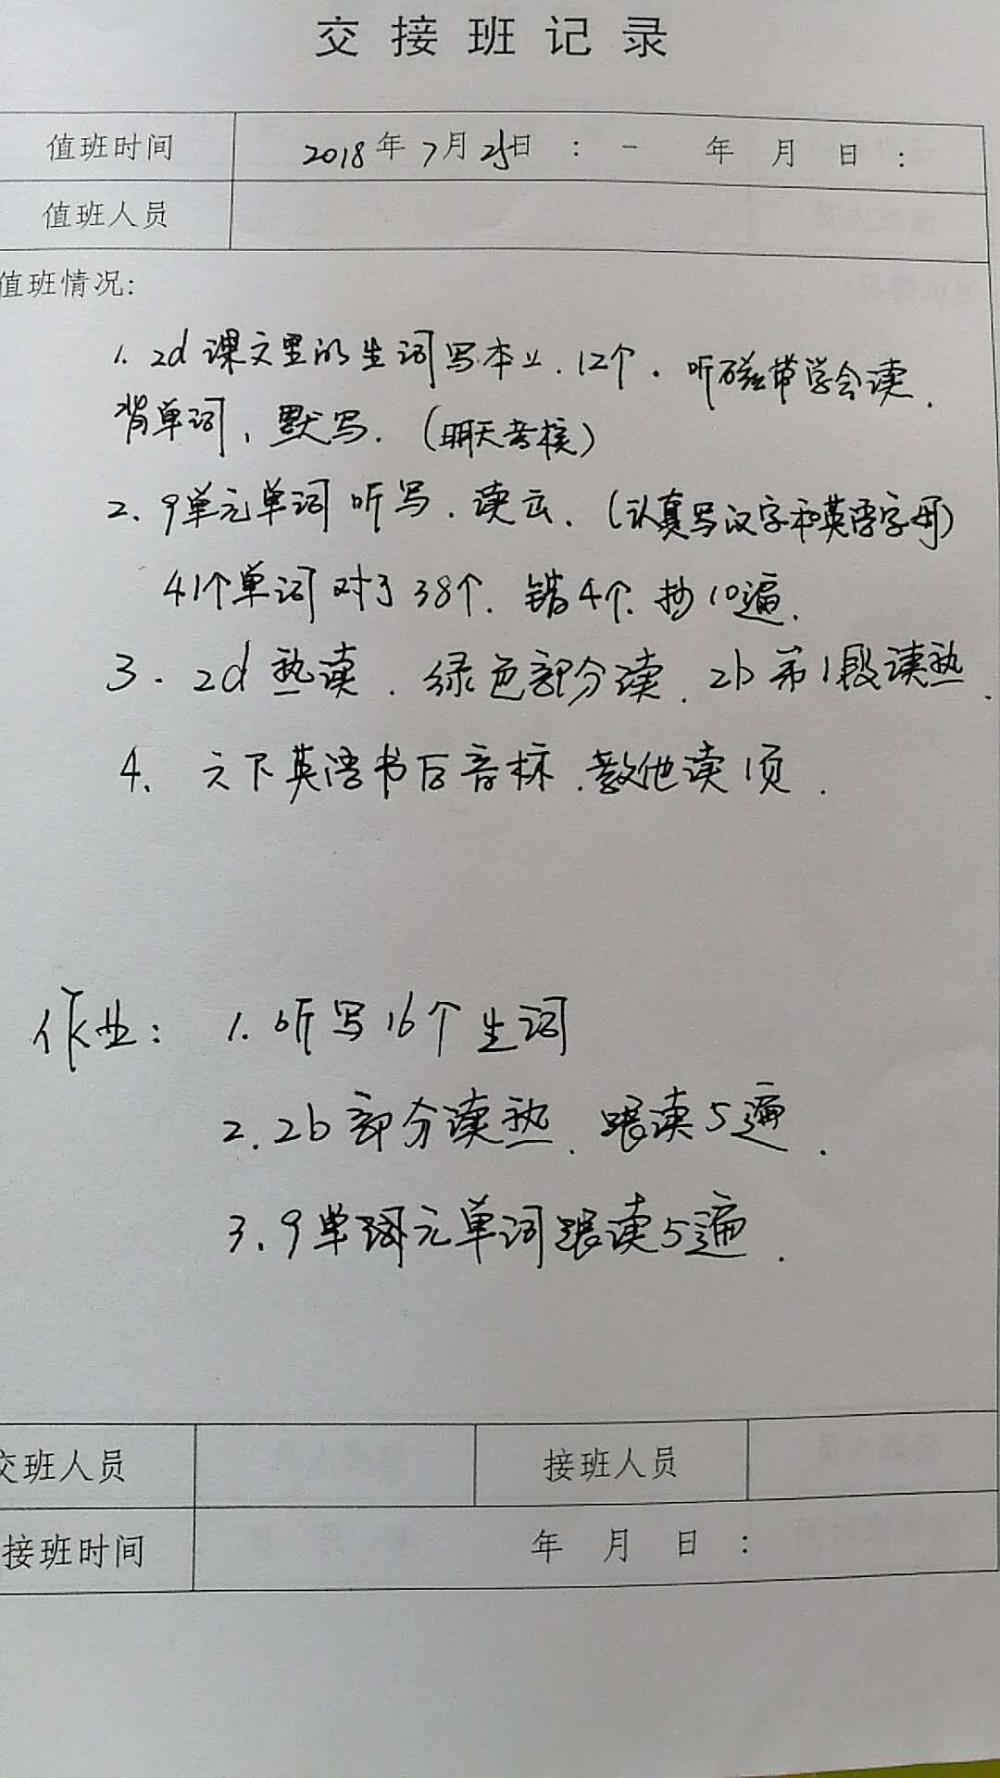 交接班记录
值班时间 2018年7月25日 : - 年 月 日 :
值班人员
值班情况:
1. 2d 课文里的生词写本上. 12个. 听磁带学会读.
背单词, 默写. (明天考核)
2、9单元单词 听写. 读去. (认真写汉字和英语字母)
41个单词 对了 38个. 错4个. 抄10遍.
3. 2d 熟读. 绿色部分读. 2b 第1段读熟.
4、 六下英语书后音标. 教他读1页.
作业: 1. 听写16个生词
2. 2b 部分读熟. 跟读5遍.
3、9单元单词跟读5遍.
交班人员 接班人员
接班时间 年 月 日 :